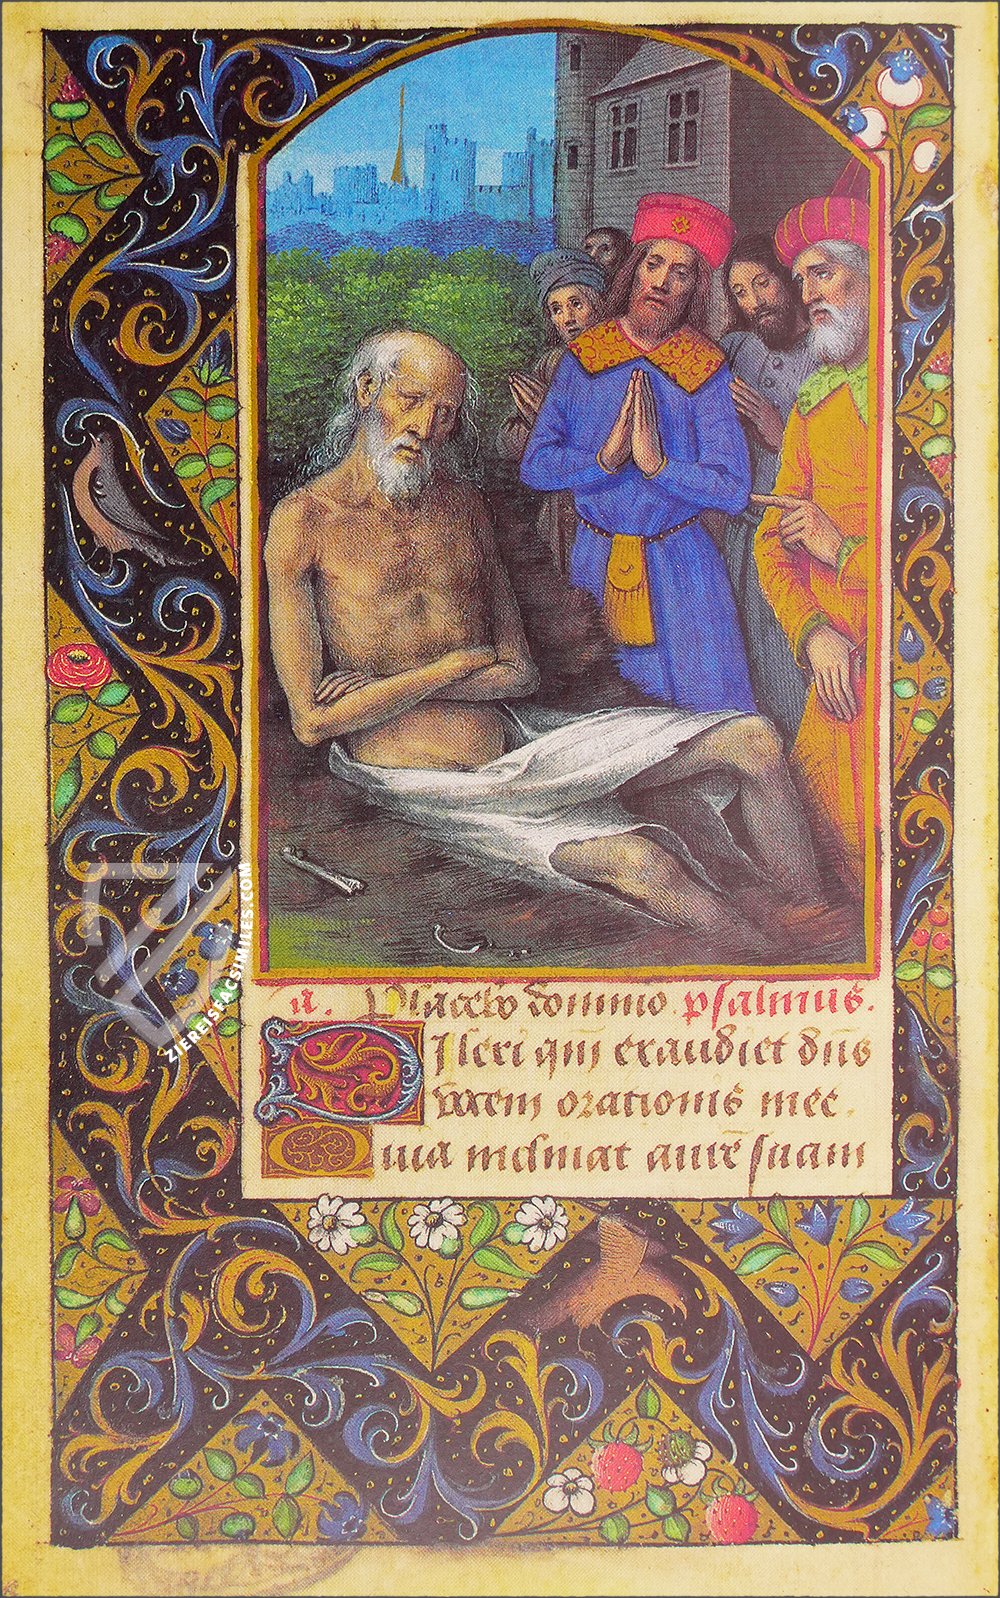 a. Placebo domino psalmus.
Dilexi qm̄ exaudiet dn̄s
vocem orationis mee.
Qvia inclinat aurē suam
ZIEREISFACSIMILES.COM